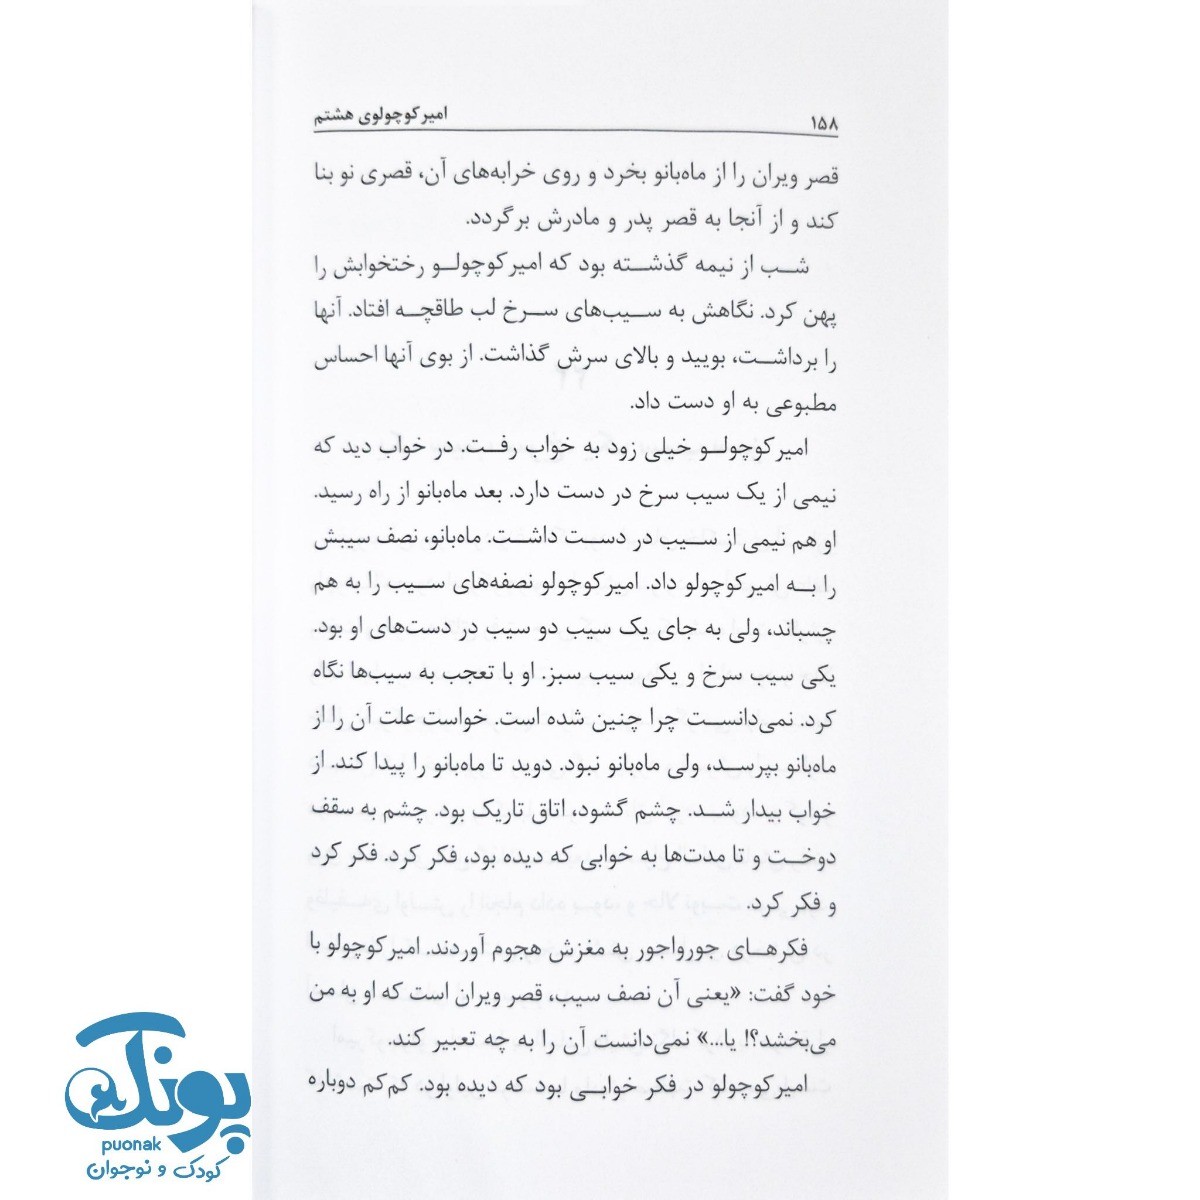 ۱۵۸ امیرکوچولوی هشتم
قصر ویران را از ماه‌بانو بخرد و روی خرابه‌های آن، قصری نو بنا
کند و از آنجا به قصر پدر و مادرش برگردد.
شب از نیمه گذشته بود که امیرکوچولو رختخوابش را
پهن کرد. نگاهش به سیب‌های سرخ لب طاقچه افتاد. آنها
را برداشت، بویید و بالای سرش گذاشت. از بوی آنها احساس
مطبوعی به او دست داد.
امیرکوچولو خیلی زود به خواب رفت. در خواب دید که
نیمی از یک سیب سرخ در دست دارد. بعد ماه‌بانو از راه رسید.
او هم نیمی از سیب در دست داشت. ماه‌بانو، نصف سیبش
را به امیرکوچولو داد. امیرکوچولو نصفه‌های سیب را به هم
چسباند، ولی به جای یک سیب دو سیب در دست‌های او بود.
یکی سیب سرخ و یکی سیب سبز. او با تعجب به سیب‌ها نگاه
کرد. نمی‌دانست چرا چنین شده است. خواست علت آن را از
ماه‌بانو بپرسد، ولی ماه‌بانو نبود. دوید تا ماه‌بانو را پیدا کند. از
خواب بیدار شد. چشم گشود، اتاق تاریک بود. چشم به سقف
دوخت و تا مدت‌ها به خوابی که دیده بود، فکر کرد. فکر کرد
و فکر کرد.
فکرهای جورواجور به مغزش هجوم آوردند. امیرکوچولو با
خود گفت: «یعنی آن نصف سیب، قصر ویران است که او به من
می‌بخشد؟! یا...» نمی‌دانست آن را به چه تعبیر کند.
امیرکوچولو در فکر خوابی بود که دیده بود. کم‌کم دوباره
پونک
puonak
کودک و نوجوان